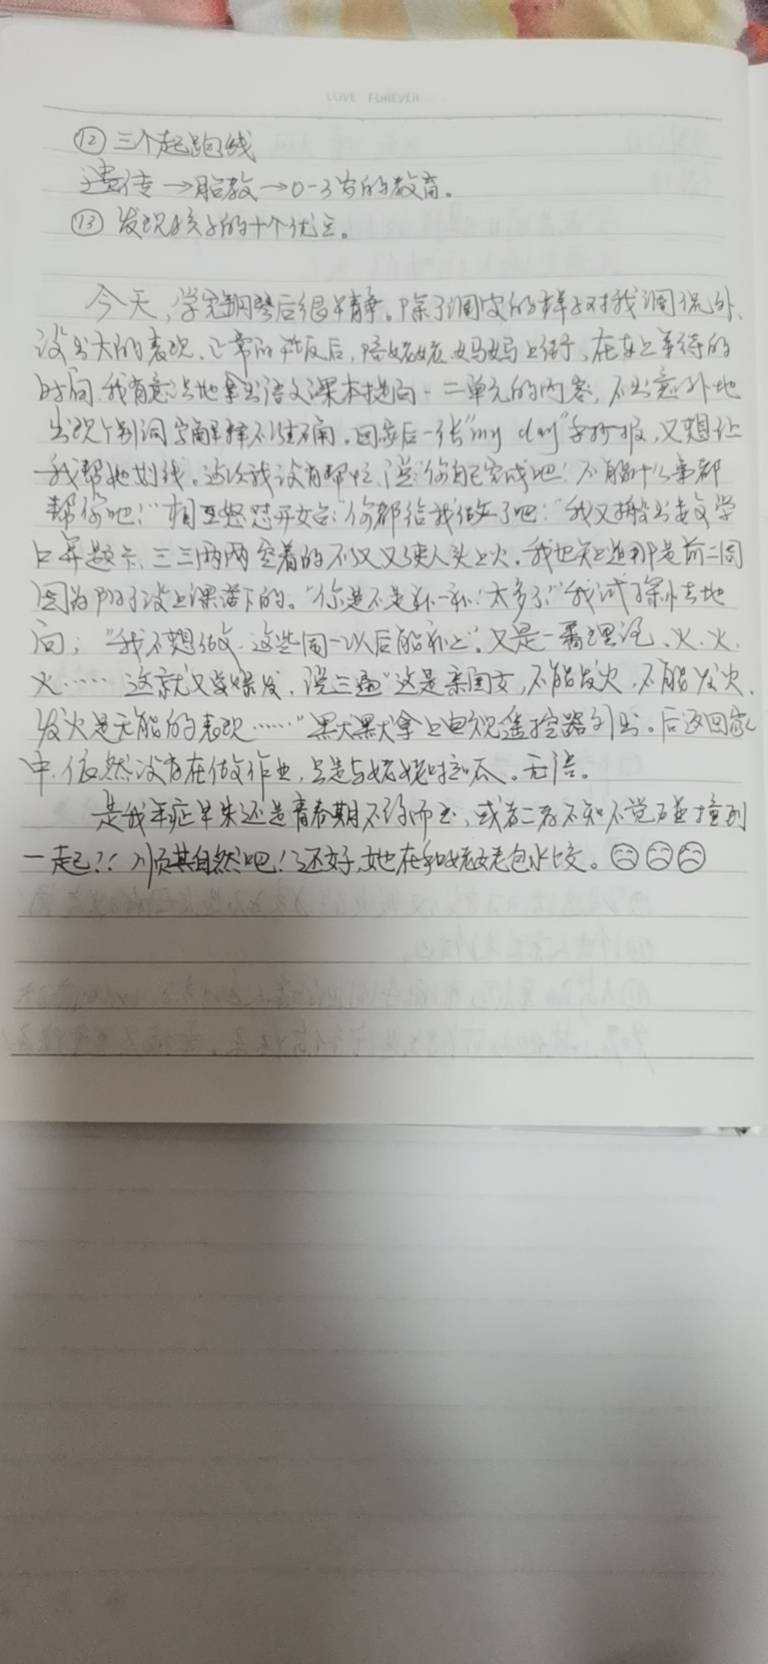 LOVE FOREVER
⑫ 三个起跑线
遗传→胎教→0-3岁的教育。
⑬ 发现孩子的十个优点。
今天,学完钢琴后很平静。除了调皮的样子对我调侃外,
没多大的表现。正常的午饭后,陪姥姥、妈妈上街,在车上等待的
时间,我有意识地拿出语文课本提问一二单元的内容,不出意外地
出现个别词字解释不准确。回家后一张“my day”手抄报,又想让
我帮她划线。这次我没有帮忙,说:“你自己完成吧!不能什么事都
帮你吧!”相互怒怼开始:“你都给我做了吧!”我又搬出数学
口算题卡,三三两两空着的不仅又使人头上火。我也知道那是前二周
因为 没上课落下的。“你是不是补一补!太多了!”我试探性地
问;“我不想做,这些周一以后能补上”。又是一番理论,火、火、
火……这就又要爆发,说三遍“这是亲闺女,不能发火,不能发火,
发火是无能的表现……”默默拿上电视遥控器引出。后返回家
中,依然没有在做作业,只是与姥姥时 。无语。
是我年症早来还是青春期不约而至,或者二者不知不觉碰撞到
一起?!顺其自然吧!还好,她在和姥姥包水饺。☹☹☹